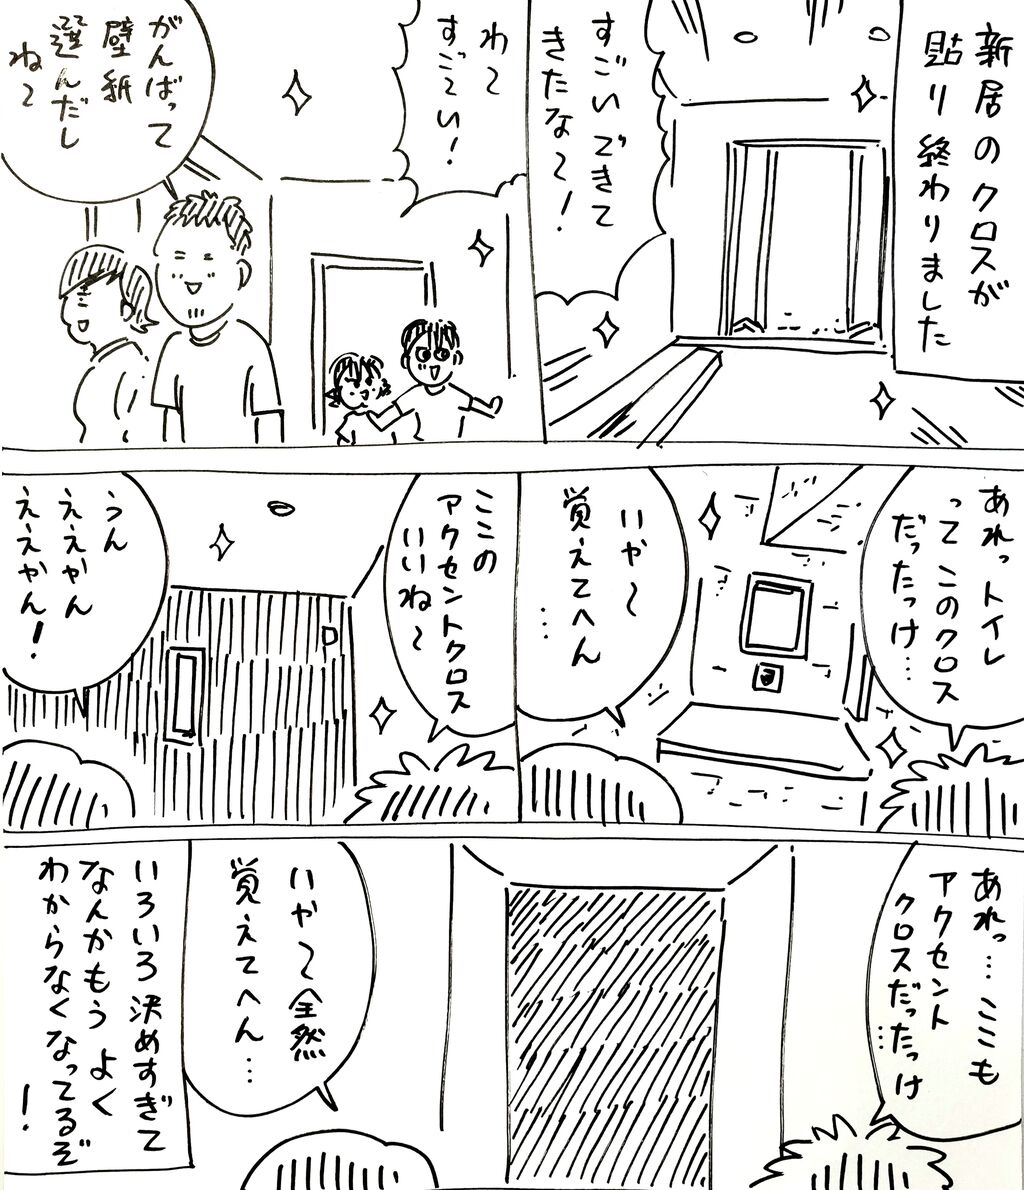 新居のクロスが
貼り終わりました
すごいできて
きたな〜！
わ〜
すご〜い！
がんばって
壁紙
選んだし
ね〜
あれっトイレ
ってこのクロス
だったっけ…
いや〜
覚えてへん
…
ここの
アクセントクロス
いいね〜
うん
ええやん
ええやん！
あれっ…ここも
アクセント
クロスだったっけ
…
いや〜全然
覚えてへん…
いろいろ決めすぎて
なんかもうよく
わからなくなってるぞ
！